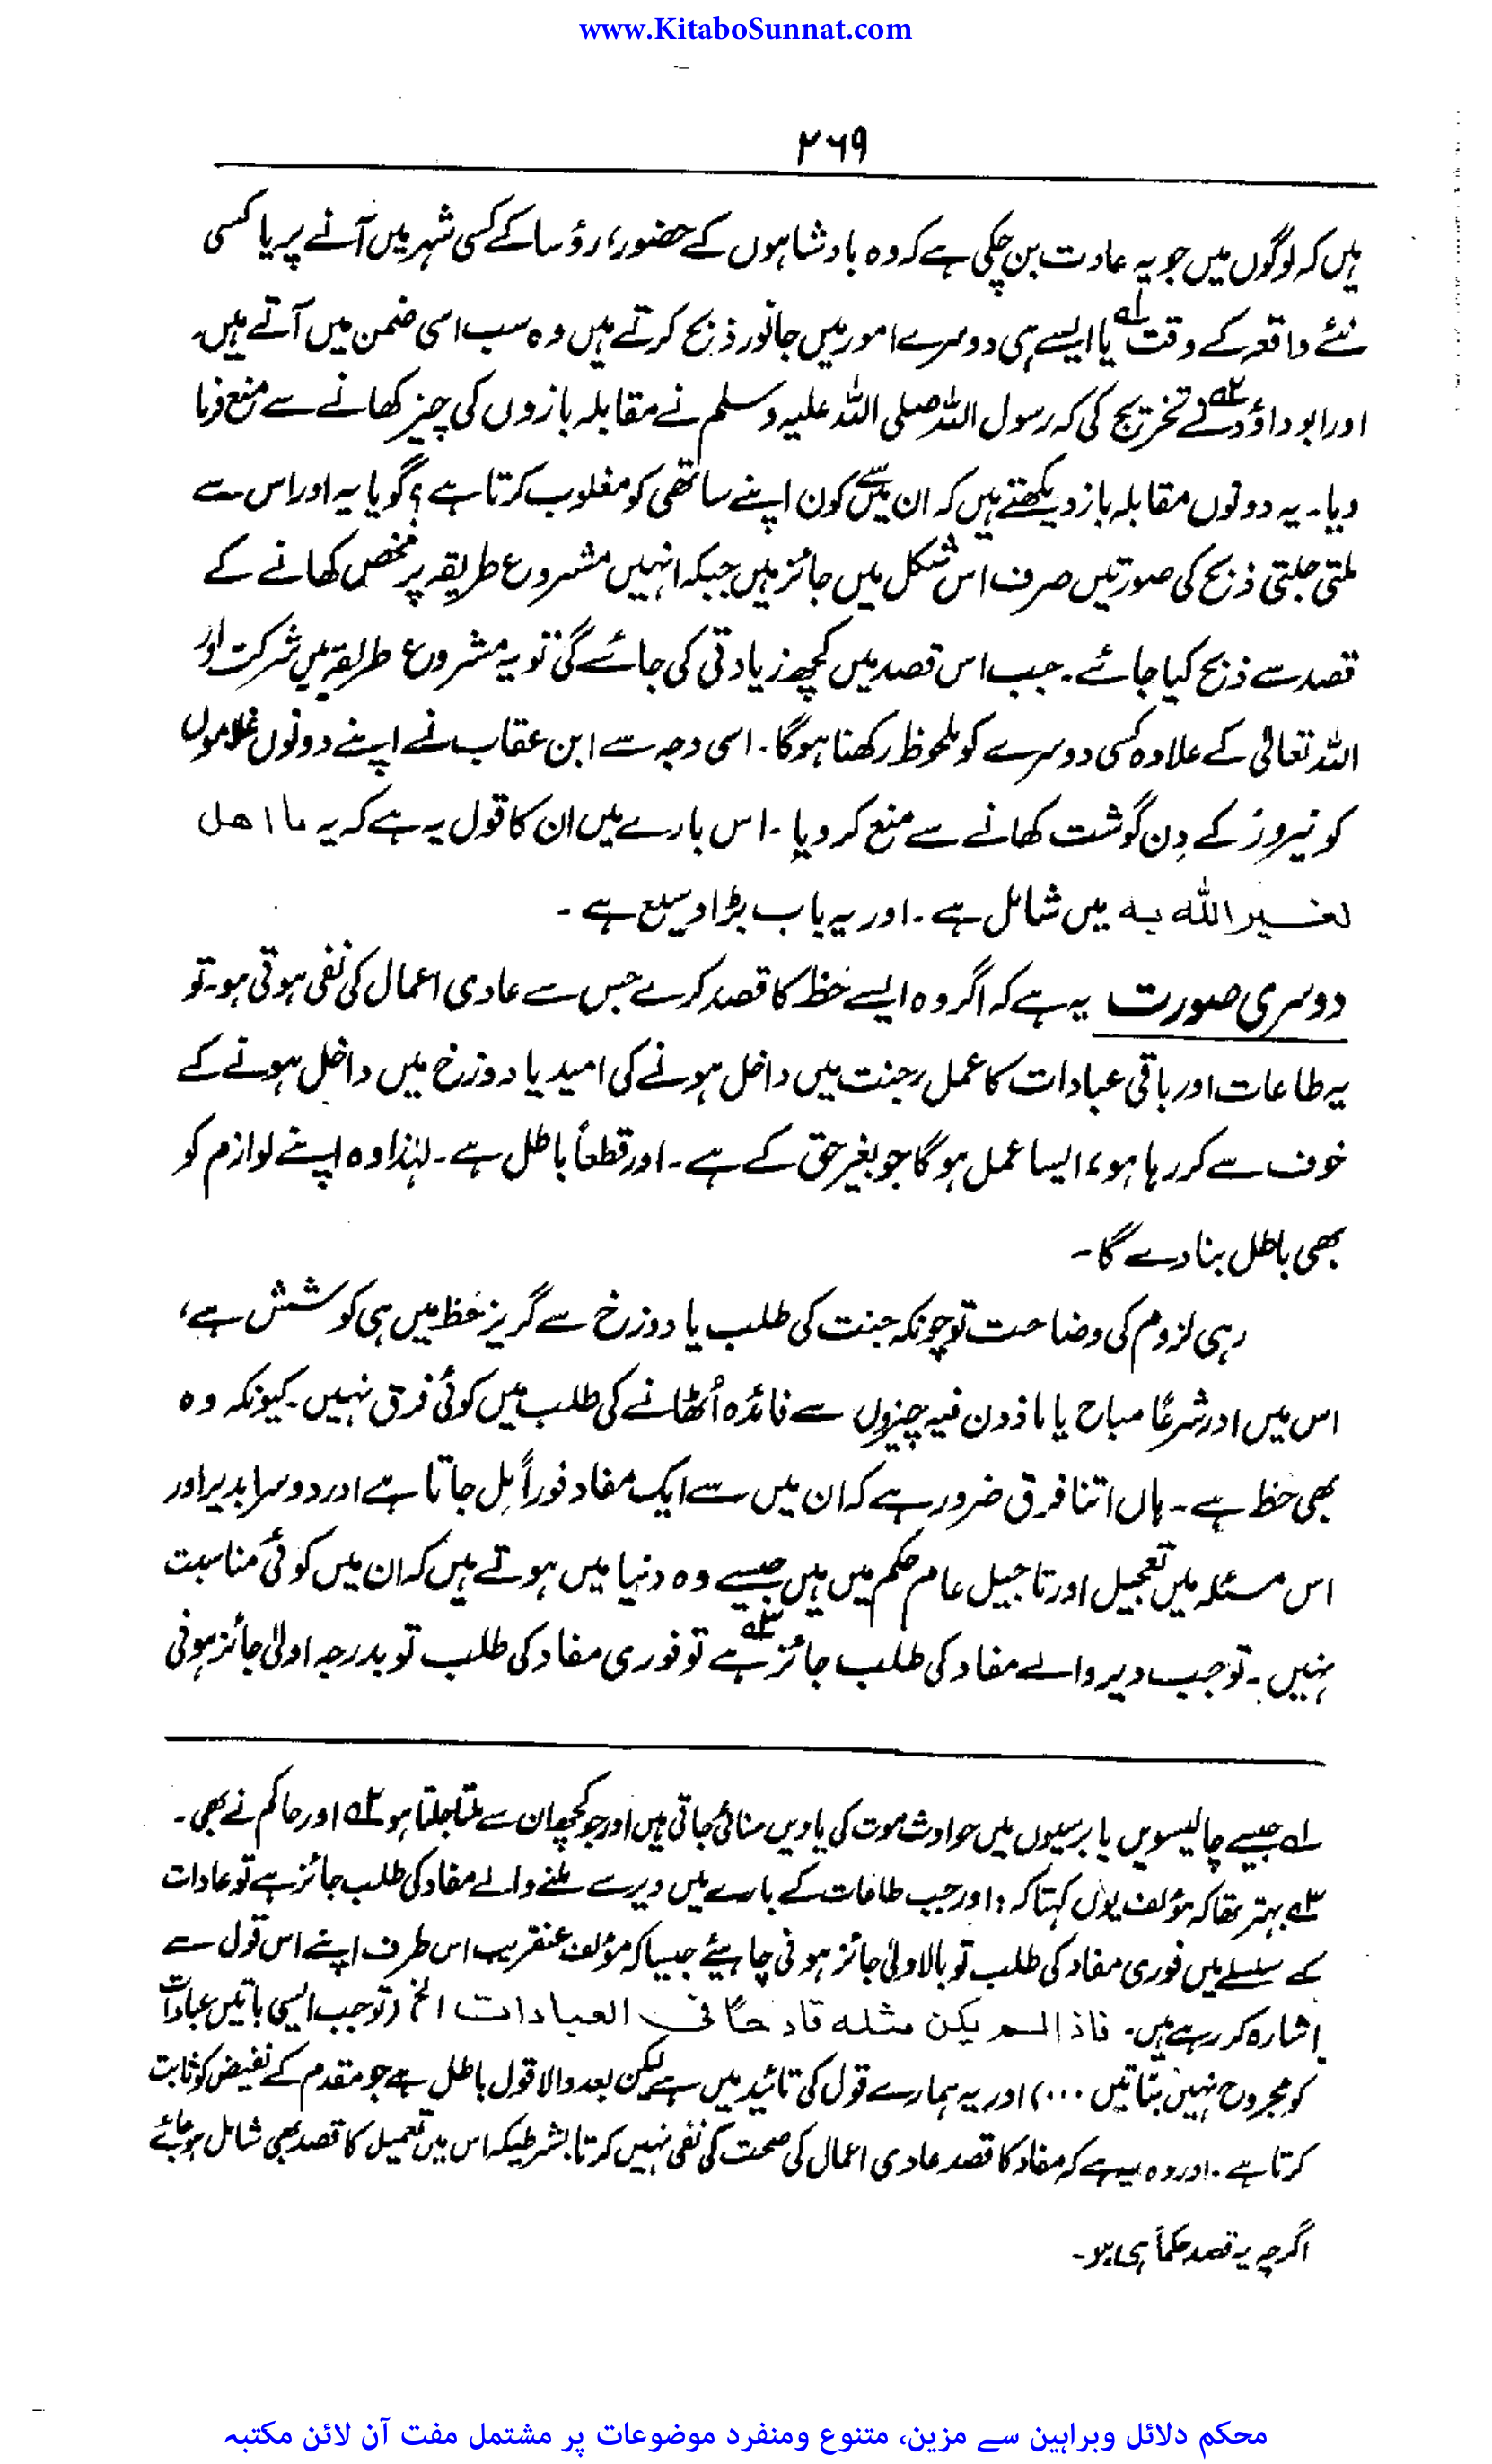 www.KitaboSunnat.com
۲۶۹
ہیں کہ لوگوں میں جو یہ عادت بن چکی ہے کہ وہ بادشاہوں کے حضور، رؤسا کے کسی شہر میں آنے پر یا کسی
نئے واقعہ کے وقت ۱ یا ایسے ہی دوسرے امور میں جانور ذبح کرتے ہیں وہ سب اسی ضمن میں آتے ہیں۔
اور ابو داؤد ۲ نے تخریج کی کہ رسول اللہ صلی اللہ علیہ وسلم نے مقابلہ بازوں کی چیز کھانے سے منع فرما
دیا۔ یہ دونوں مقابلہ باز دیکھتے ہیں کہ ان میں سے کون اپنے ساتھی کو مغلوب کرتا ہے؟ گویا یہ اور اس سے
ملتی جلتی ذبح کی صورتیں صرف اس شکل میں جائز ہیں جبکہ انہیں مشروع طریقہ پر محض کھانے کے
قصد سے ذبح کیا جائے۔ جب اس قصد میں کچھ زیادتی کی جائے گی تو یہ مشروع طریقہ میں شرکت اور
اللہ تعالیٰ کے علاوہ کسی دوسرے کو ملحوظ رکھنا ہوگا۔ اسی وجہ سے ابن عقاب نے اپنے دونوں غلاموں
کو نیروز کے دِن گوشت کھانے سے منع کر دیا۔ اس بارے میں ان کا قول یہ ہے کہ یہ ما اھل
لغیر اللہ بہ میں شامل ہے۔ اور یہ باب بڑا وسیع ہے۔
دوسری صورت یہ ہے کہ اگر وہ ایسے حظ کا قصد کرے جس سے عادی اعمال کی نفی ہوتی ہو۔ تو
یہ طاعات اور باقی عبادات کا عمل، جنت میں داخل ہونے کی امید یا دوزخ میں داخل ہونے کے
خوف سے کر رہا ہو، ایسا عمل ہوگا جو بغیر حق کے ہے۔ اور قطعاً باطل ہے۔ لہٰذا وہ اپنے لوازم کو
بھی باطل بنا دے گا۔
رہی لزوم کی وضاحت تو چونکہ جنت کی طلب یا دوزخ سے گریز حظ میں ہی کوشش ہے،
اس میں اور شرعاً مباح یا ماذون فیہ چیزوں سے فائدہ اُٹھانے کی طلب میں کوئی فرق نہیں۔ کیونکہ وہ
بھی حظ ہے۔ ہاں اتنا فرق ضرور ہے کہ ان میں سے ایک مفاد فوراً مِل جاتا ہے اور دوسرا بدیر اور
اس مسئلہ میں تعجیل اور تاجیل عام حکم میں ہیں جیسے وہ دنیا میں ہوتے ہیں کہ ان میں کوئی مناسبت
نہیں۔ تو جب دیر والے مفاد کی طلب جائز ۳ ہے تو فوری مفاد کی طلب تو بدرجہ اولیٰ جائز ہوئی
۱ جیسے چالیسویں یا برسیوں میں حوادث موت کی یادیں منائی جاتی ہیں اور جو کچھ ان سے ملتا جلتا ہو ۲ اور حاکم نے بھی۔
۳ بہتر تھا کہ مؤلف یوں کہتا کہ : اور جب طاعات کے بارے میں دیر سے ملنے والے مفاد کی طلب جائز ہے تو عادات
کے سلسلے میں فوری مفاد کی طلب تو بالاولیٰ جائز ہونی چاہیئے جیسا کہ مؤلف عنقریب اس طرف اپنے اس قول سے
اشارہ کر رہے ہیں۔ فاذا لم یکن مثلہ قادحًا فی العبادات الخ (تو جب ایسی باتیں عبادات
کو مجروح نہیں بناتیں ...) اور یہ ہمارے قول کی تائید میں ہے لیکن بعد والا قول باطل ہے جو مقدم کے نقیض کو ثابت
کرتا ہے۔ اور وہ یہ ہے کہ مفاد کا قصد عادی اعمال کی صحت کی نفی نہیں کرتا بشرطیکہ اس میں تعمیل کا قصد بھی شامل ہو جائے
اگرچہ یہ قصد حکماً ہی ہو۔
محکم دلائل وبراہین سے مزین، متنوع ومنفرد موضوعات پر مشتمل مفت آن لائن مکتبہ